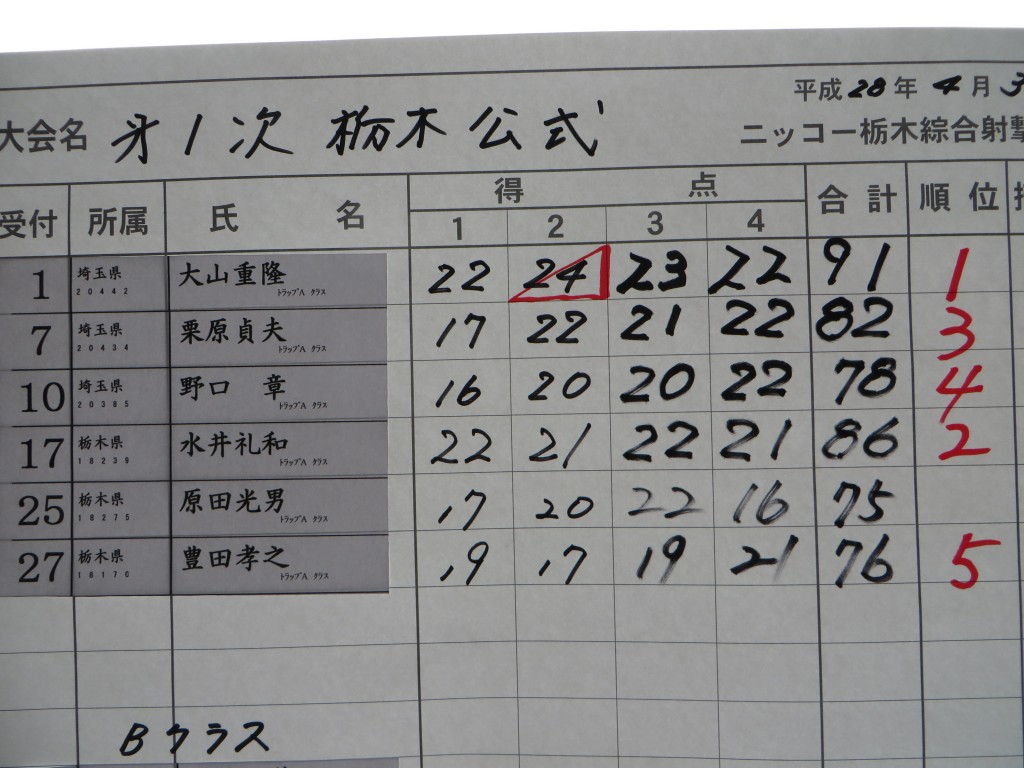 平成 28 年 4 月 3
大会名 第1次 栃木公式
ニッコー栃木綜合射撃
受付 所属 氏 名 得 点 合計 順位
1 2 3 4
1 埼玉県 大山重隆 22 24 23 22 91 1
20442 トラップA クラス
7 埼玉県 栗原貞夫 17 22 21 22 82 3
20434 トラップA クラス
10 埼玉県 野口 章 16 20 20 22 78 4
20385 トラップA クラス
17 栃木県 水井礼和 22 21 22 21 86 2
18239 トラップA クラス
25 栃木県 原田光男 17 20 22 16 75
18275 トラップA クラス
27 栃木県 豊田孝之 19 17 19 21 76 5
18170 トラップA クラス
Bクラス